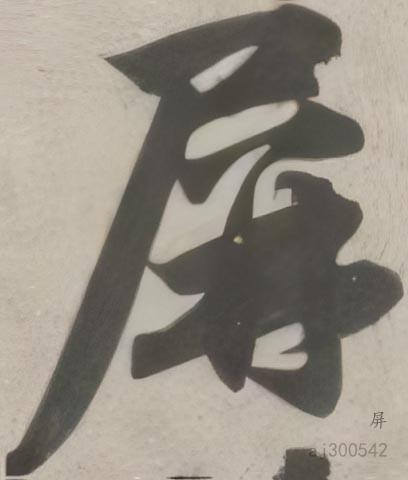 屏
屏
aj300542